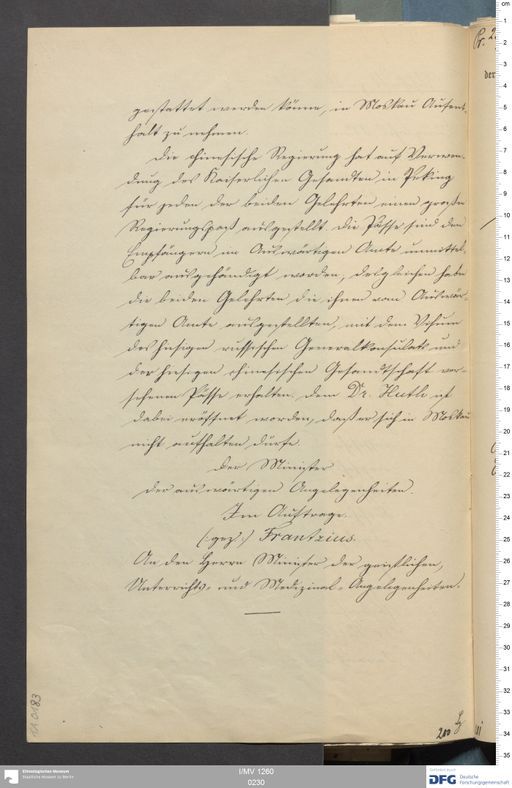 gestattet werden könne, in Moskau Aufent-
halt zu nehmen.
Die chinesische Regierung hat auf Verwen-
dung des Kaiserlichen Gesandten in Peking
für jeden der beiden Gelehrten einen großen
Regierungspaß ausgestellt. Die Pässe sind den
Empfängern im Auswärtigen Amte unmittel-
bar ausgehändigt worden, desgleichen haben
die beiden Gelehrten die ihnen vom Auswär-
tigen Amte ausgestellten, mit dem Visum
des hiesigen russischen Generalkonsulats und
der hiesigen chinesischen Gesandtschaft ver-
sehenen Pässe erhalten. Dem Dr. Huth ist
dabei eröffnet worden, daß er sich in Moskau
nicht aufhalten dürfe.
Der Minister
der auswärtigen Angelegenheiten.
Im Auftrage.
(gez:) Frantzius.
An den Herrn Minister der geistlichen,
Unterrichts- und Medizinal-Angelegenheiten.
der
1A0183
200
Ethnologisches Museum
Staatliche Museen zu Berlin
I/MV 1260
0230
DFG
Deutsche
Forschungsgemeinschaft
cm
1
2
3
4
5
6
7
8
9
10
11
12
13
14
15
16
17
18
19
20
21
22
23
24
25
26
27
28
29
30
31
32
33
34
35